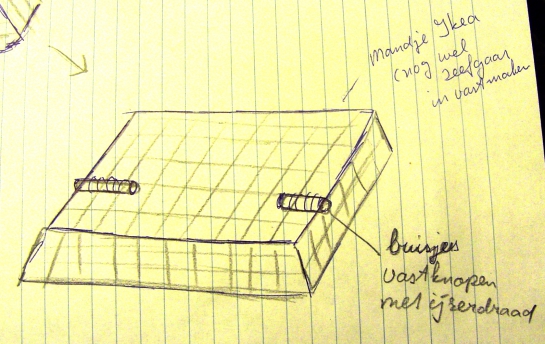 Mandje Ikea
(nog wel
zeefgaas
in vastmaken
buisjes
vastknopen
met ijzerdraad